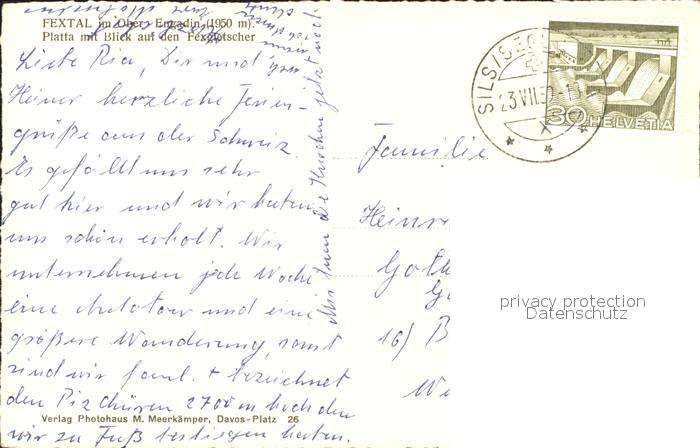 FEXTAL im Ober-Engadin (1950 m).
Platta mit Blick auf den Fexgletscher
Liebe Ria, Dir und
Heiner herzliche Ferien-
grüße aus der Schweiz.
Es gefällt uns sehr
gut hier und wir haben
uns schön erholt. Wir
unternehmen jede Woche
eine Autotour und eine
größere Wanderung, sonst
sind wir faul. + bezeichnet
den Piz 2700 m hoch den
wir zu Fuß bestiegen haben.
Mir tuen die Knochen jetzt noch
Verlag Photohaus M. Meerkämper, Davos-Platz 26
SILS/SEGL
23.VII.5
30 HELVETIA
Familie
Heinr
16) B
privacy protection
Datenschutz